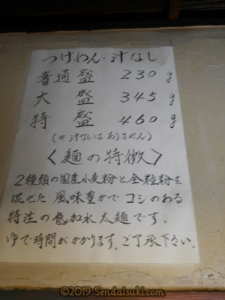 つけめん・汁なし
普通盛 230g
大盛 345g
特盛 460g
(※汁なしはありません)
〈麺の特徴〉
2種類の国産小麦粉と全粒粉を
混ぜた風味豊かでコシのある
特注の色加水太麺です。
ゆで時間がかかります。ご了承下さい。
©2019 Sendaisuki.com